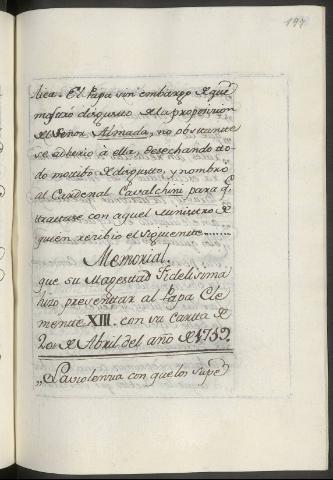 197
lica. El Papa sin embargo de que
mostró disgusto de la propension
del Señor Almada, no obstante
se adhirio à ella, desechando to-
do motibo de disgusto, y nombró
al Cardenal Cavalchini para qe
tratase con aquel Ministro de
quien recibio el siguiente......
Memorial.
que su Magestad Fidelisima
hizo presentar al Papa Cle
mente XIII. con su Carta de
20 de Abril del año de 1759.
„La violencia con que los Supe